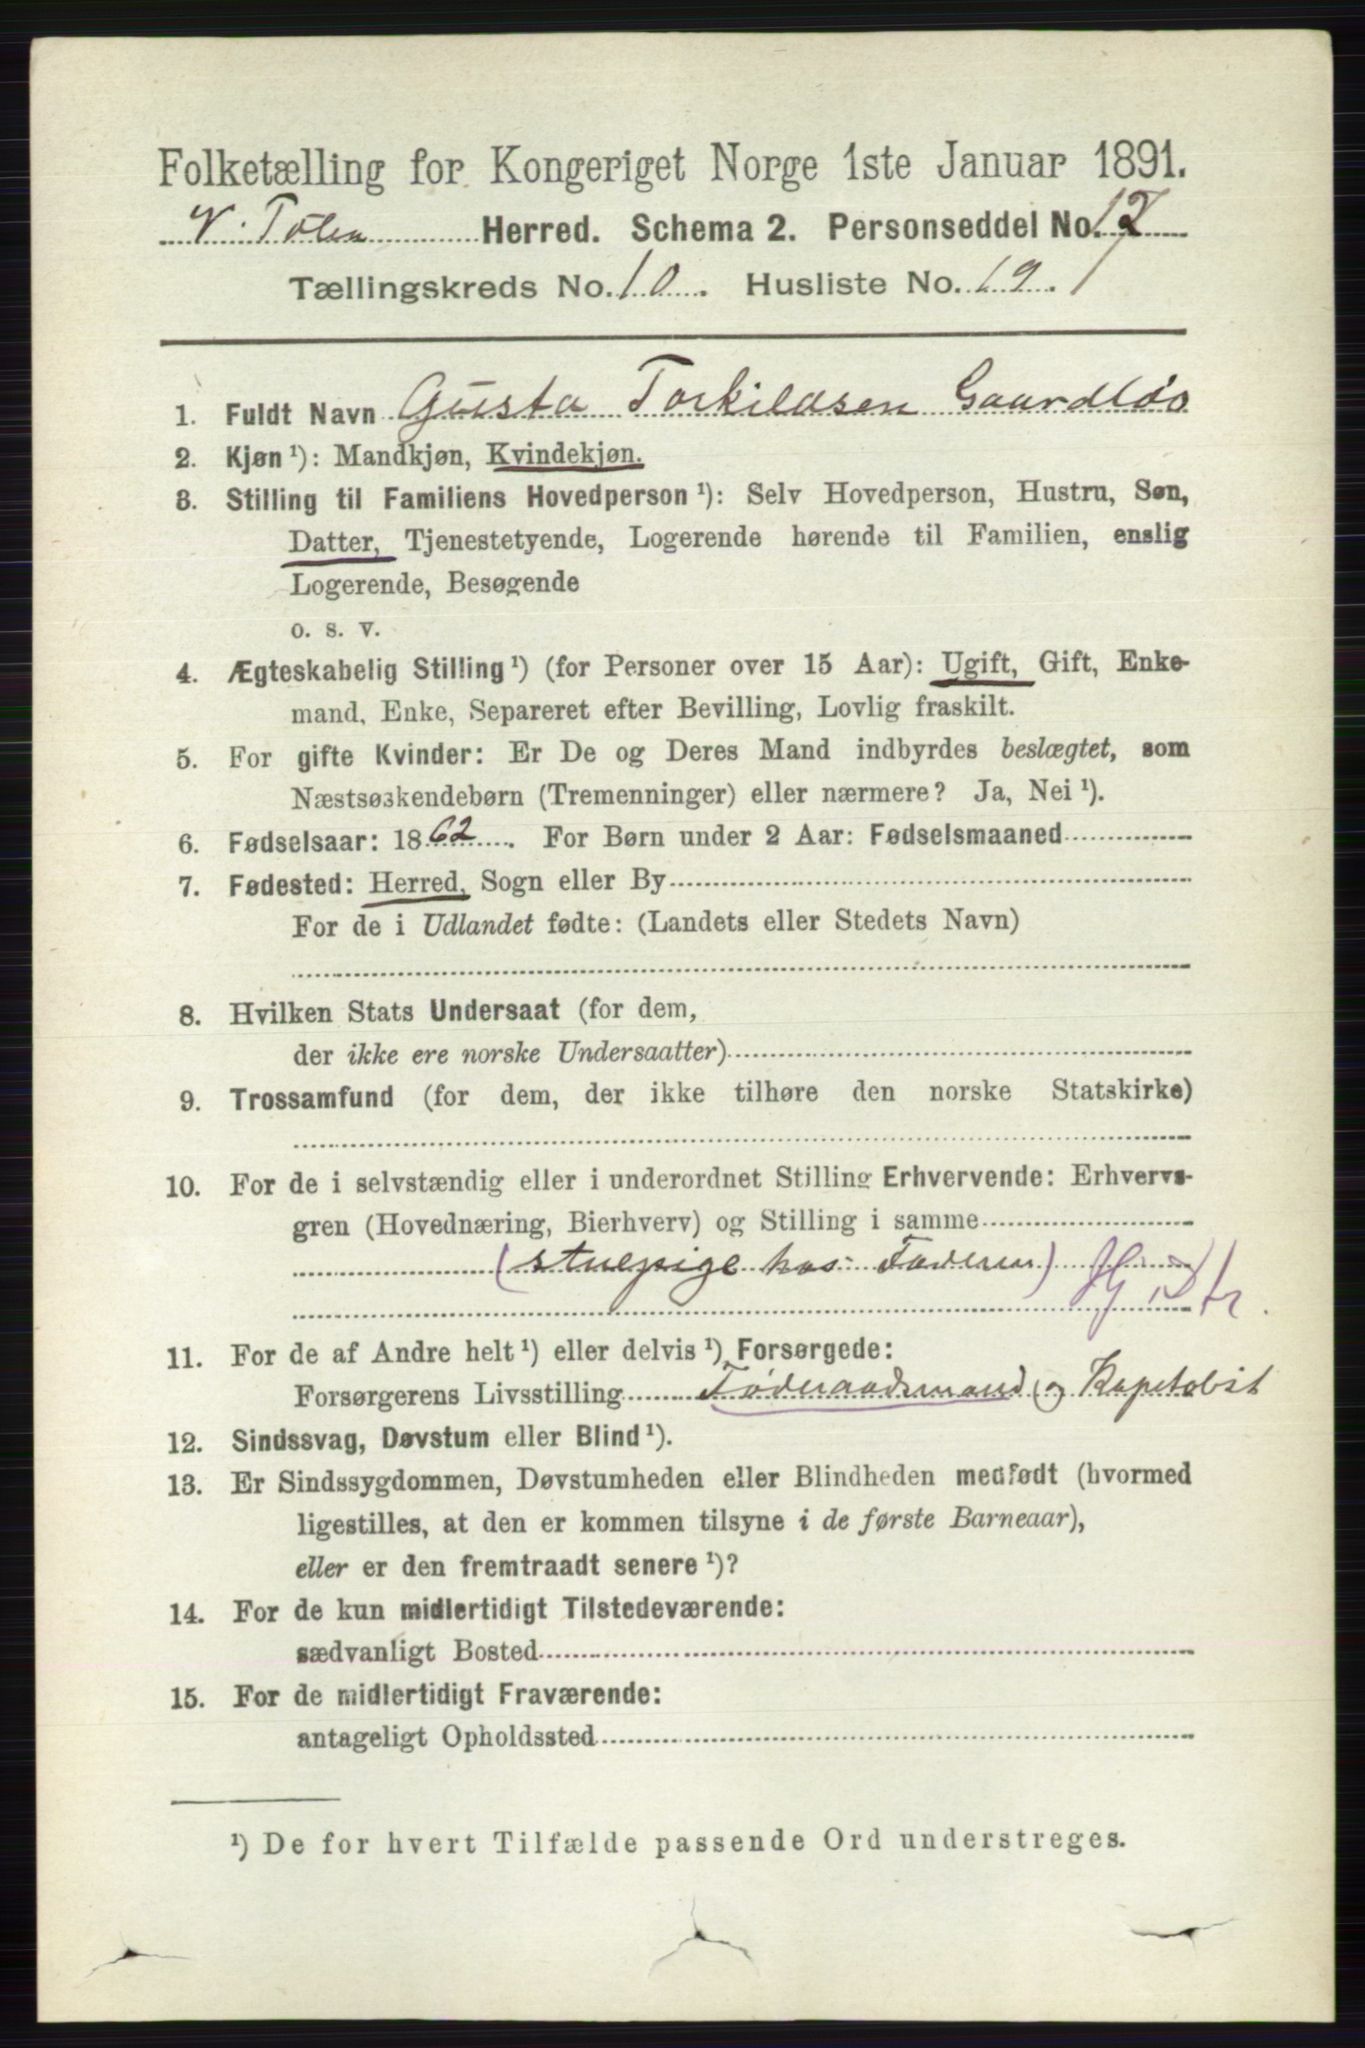 Folketælling for Kongeriget Norge 1ste Januar 1891.
V. Toten Herred. Schema 2. Personseddel No. 17
Tællingskreds No. 10. Husliste No. 19.
1. Fuldt Navn Gusta Torkildsen Gaardløs
2. Kjøn ¹): Mandkjøn, Kvindekjøn.
3. Stilling til Familiens Hovedperson ¹): Selv Hovedperson, Hustru, Søn,
Datter, Tjenestetyende, Logerende hørende til Familien, enslig
Logerende, Besøgende
o. s. v.
4. Ægteskabelig Stilling ¹) (for Personer over 15 Aar): Ugift, Gift, Enke-
mand, Enke, Separeret efter Bevilling, Lovlig fraskilt.
5. For gifte Kvinder: Er De og Deres Mand indbyrdes beslægtet, som
Næstsøskendebørn (Tremenninger) eller nærmere? Ja, Nei ¹).
6. Fødselsaar: 1862. For Børn under 2 Aar: Fødselsmaaned
7. Fødested: Herred, Sogn eller By
For de i Udlandet fødte: (Landets eller Stedets Navn)
8. Hvilken Stats Undersaat (for dem,
der ikke ere norske Undersaatter)
9. Trossamfund (for dem, der ikke tilhøre den norske Statskirke)
10. For de i selvstændig eller i underordnet Stilling Erhvervende: Erhvervs-
gren (Hovednæring, Bierhverv) og Stilling i samme
(stuepige hos Faderen)
11. For de af Andre helt ¹) eller delvis ¹) Forsørgede:
Forsørgerens Livsstilling Føderaadsmand og Kapetalist
12. Sindssvag, Døvstum eller Blind ¹).
13. Er Sindssygdommen, Døvstumheden eller Blindheden medfødt (hvormed
ligestilles, at den er kommen tilsyne i de første Barneaar),
eller er den fremtraadt senere ¹)?
14. For de kun midlertidigt Tilstedeværende:
sædvanligt Bosted
15. For de midlertidigt Fraværende:
antageligt Opholdssted
¹) De for hvert Tilfælde passende Ord understreges.